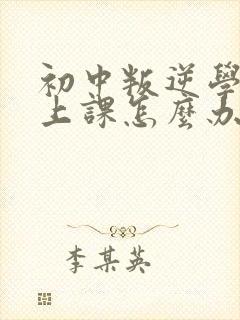 初中叛逆學
上課怎麼办
李某英